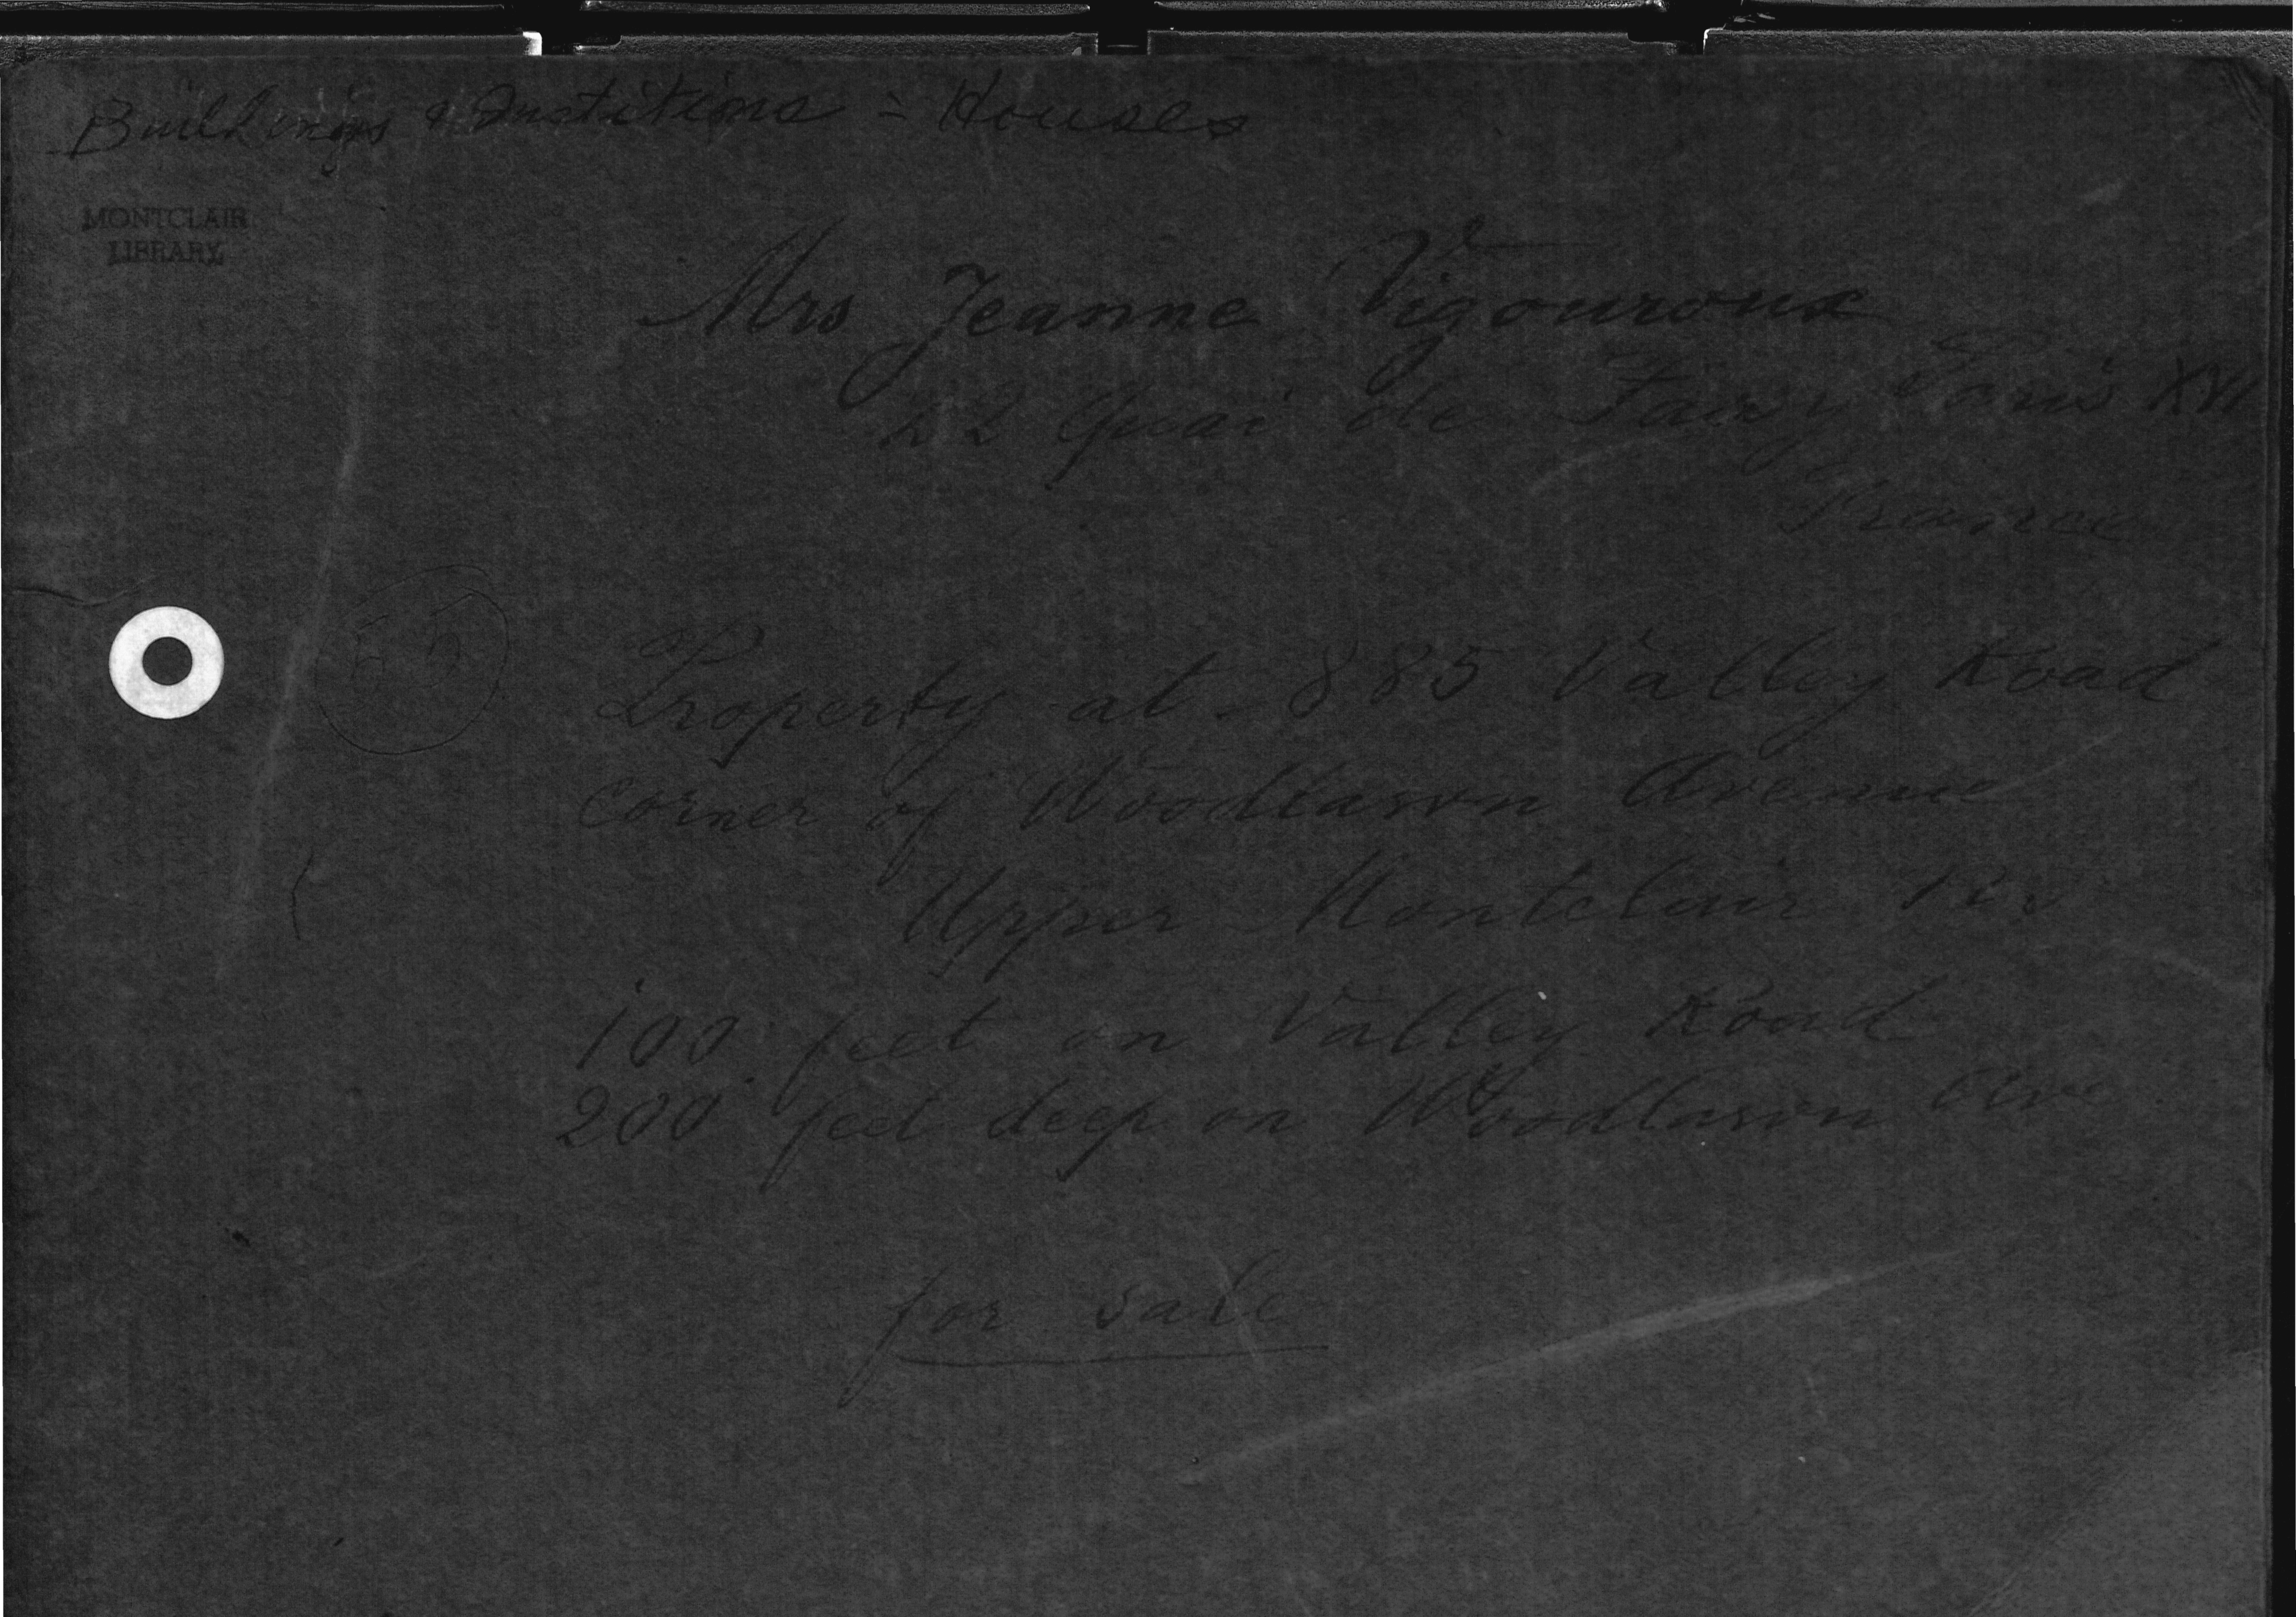 Buildings & Institions - Houses
MONTCLAIR
LIBRARY
Mrs Jeanne Vigouroux
22 Quai de Passy Paris XVI
France
Property at 885 Valley Road
corner of Woodlawn Avenue
Upper Montclair
100 feet on Valley Road
200 feet deep on Woodlawn Ave
for sale